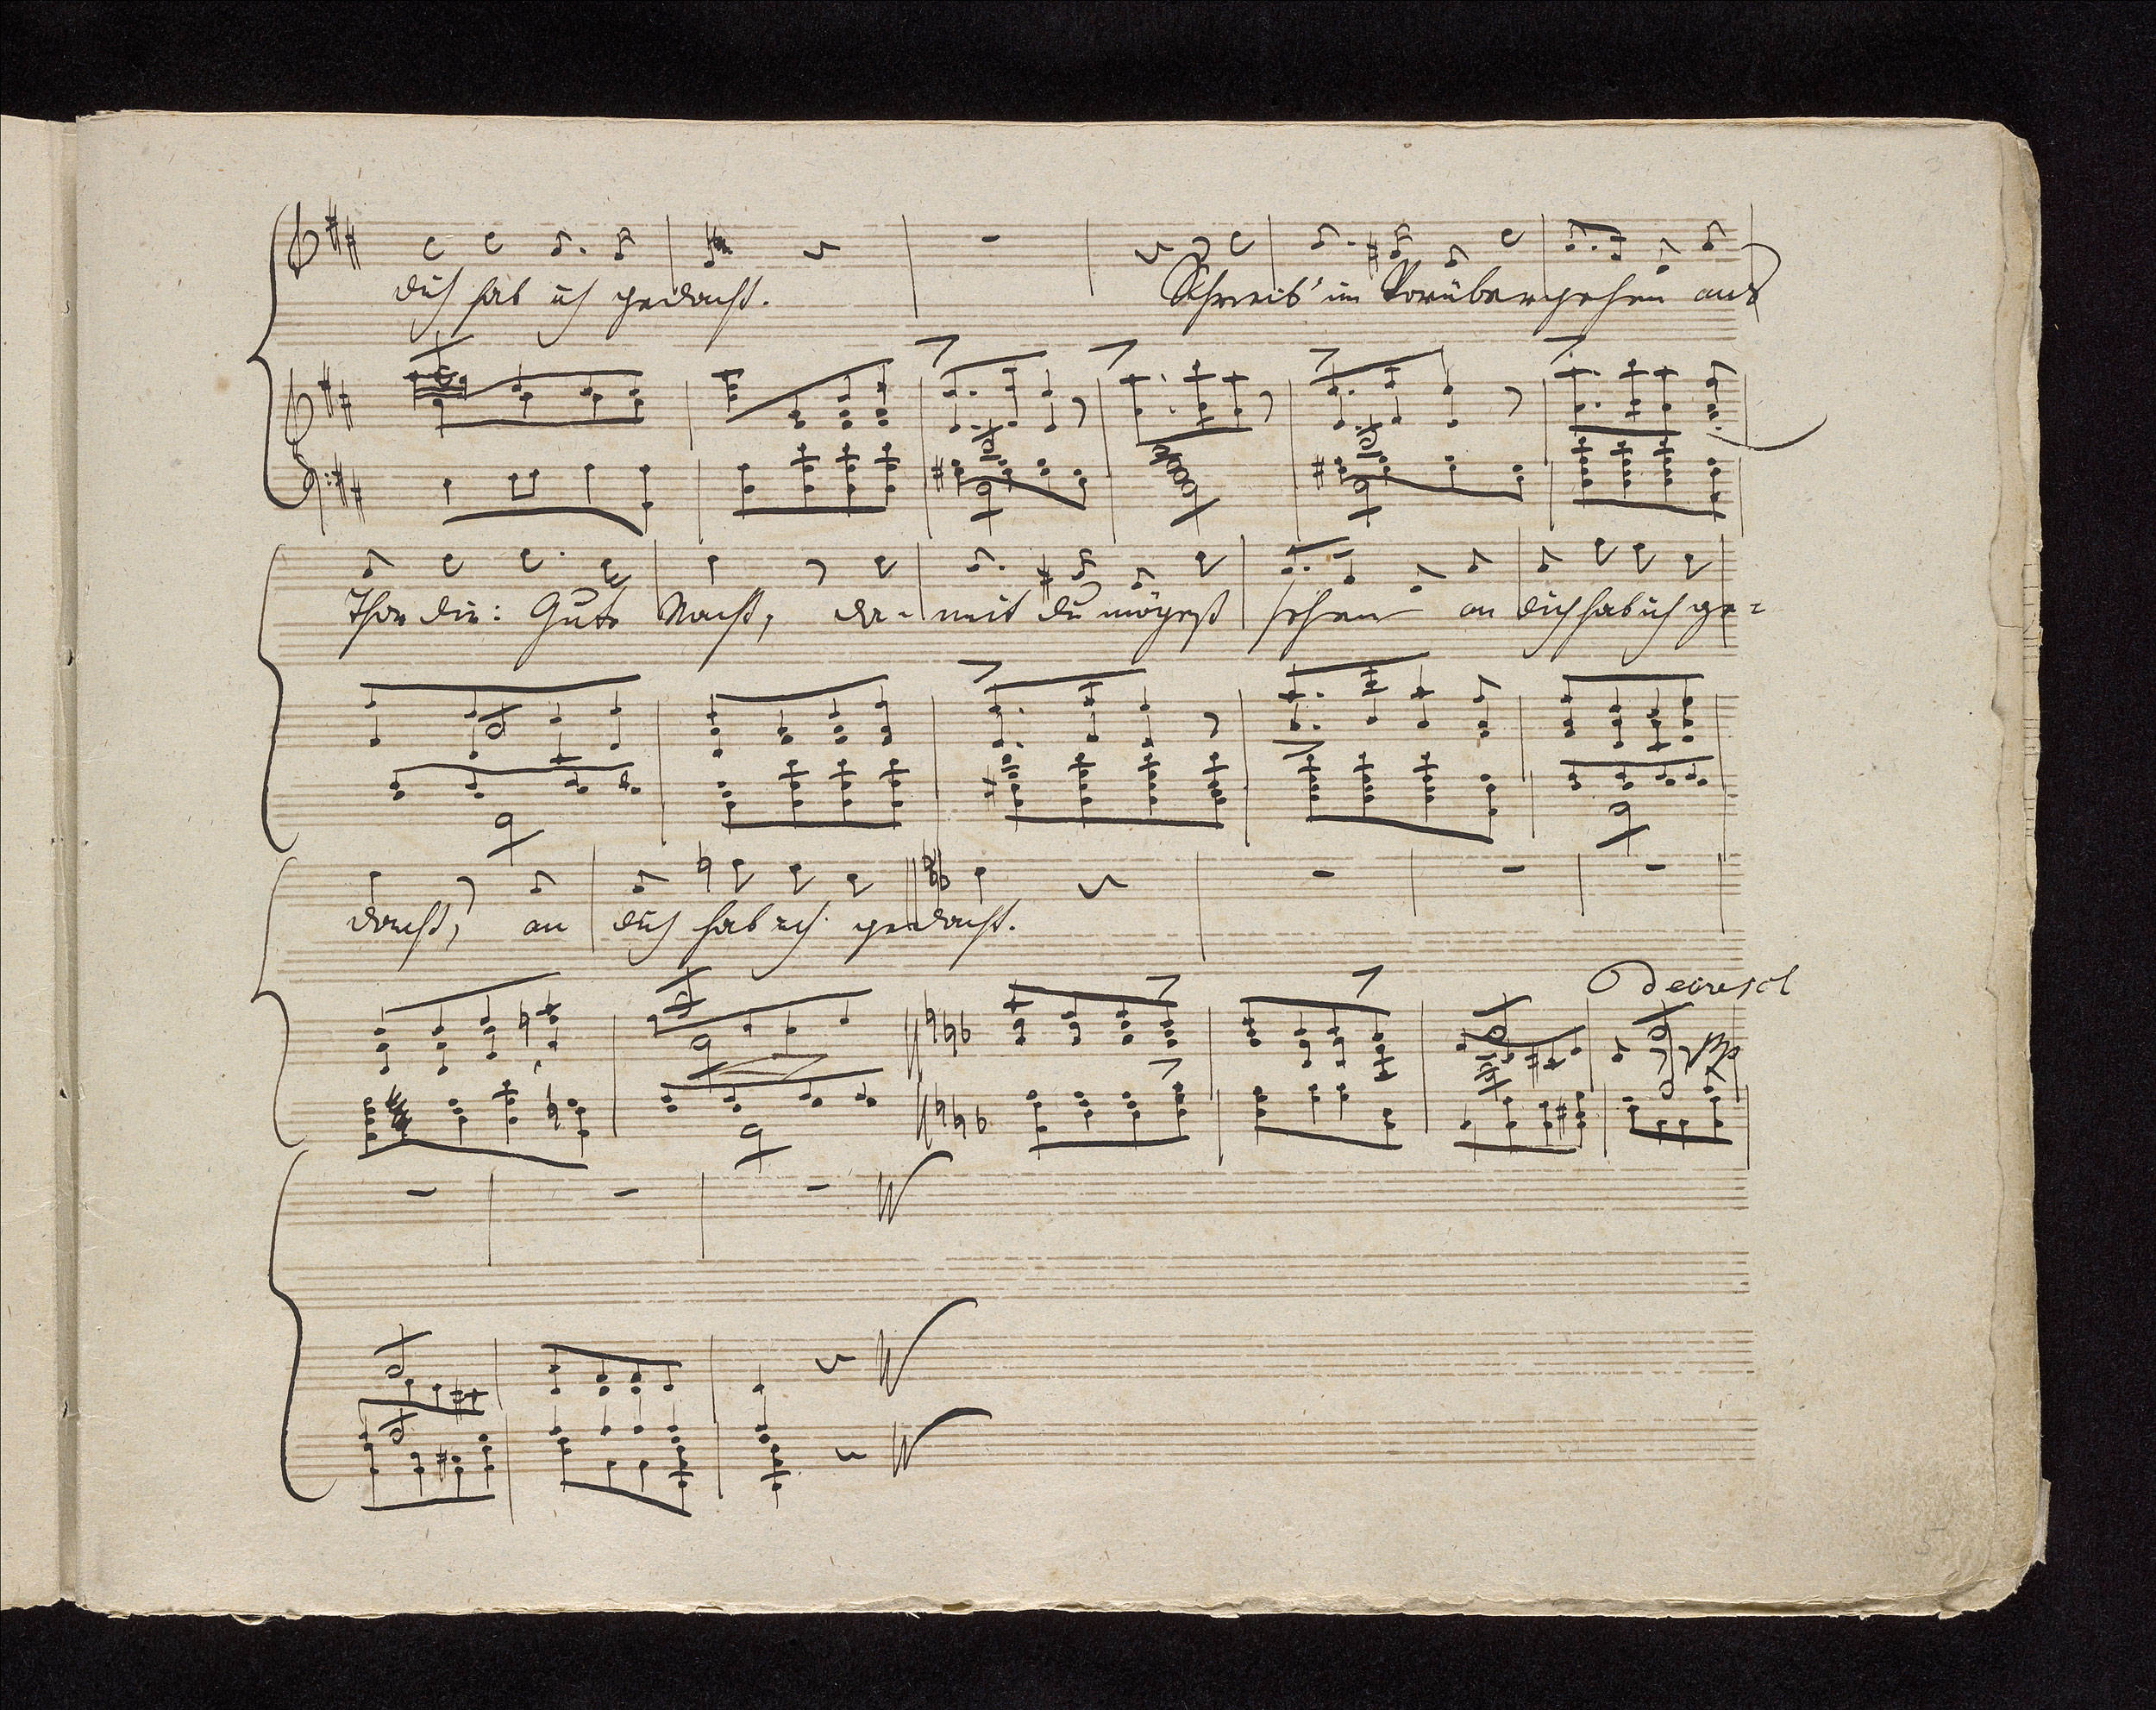 dich hab ich gedacht. Schreib' im Vorübergehen ans
Thor dir: Gute Nacht, da-mit du mögest sehen an dich hab ich ge=
dacht, an dich hab ich gedacht.
Decresc
5